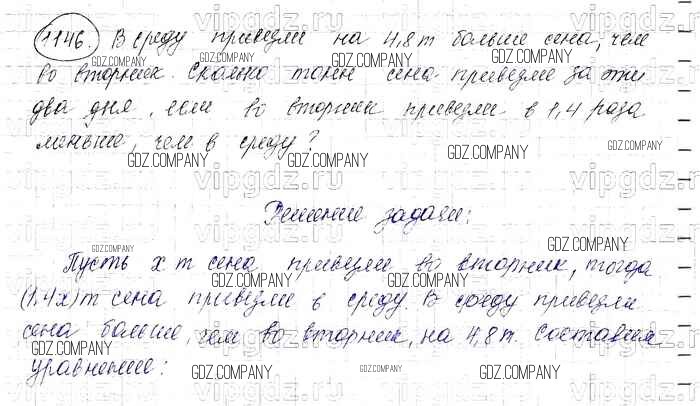 1146. В среду привезли на 4,8 т больше сена, чем
во вторник. Сколько тонн сена привезли за эти
два дня, если во вторник привезли в 1,4 раза
меньше, чем в среду?
Решение задачи:
Пусть x т сена привезли во вторник, тогда
(1,4x) т сена привезли в среду. В среду привезли
сена больше, чем во вторник, на 4,8 т. Составим
уравнение:
vipgdz.ru
GDZ.COMPANY